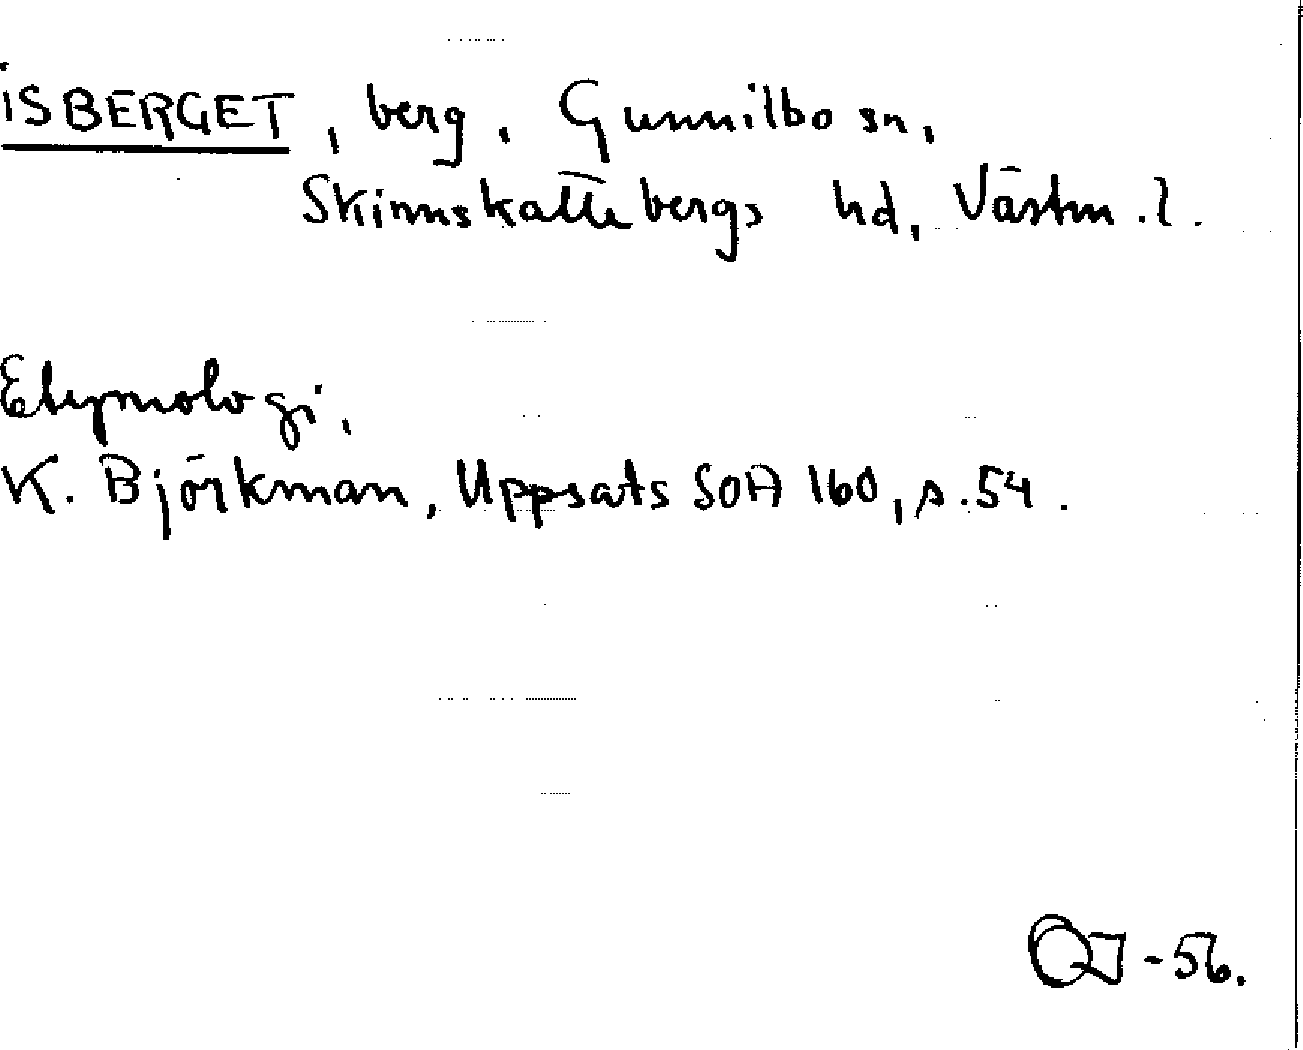 ISBERGET, berg, Gunnilbo sn,
Skinnskattebergs hd, Västm.l.
Etymologi,
K. Björkman, Uppsats SOA 160, s.54.
-56.